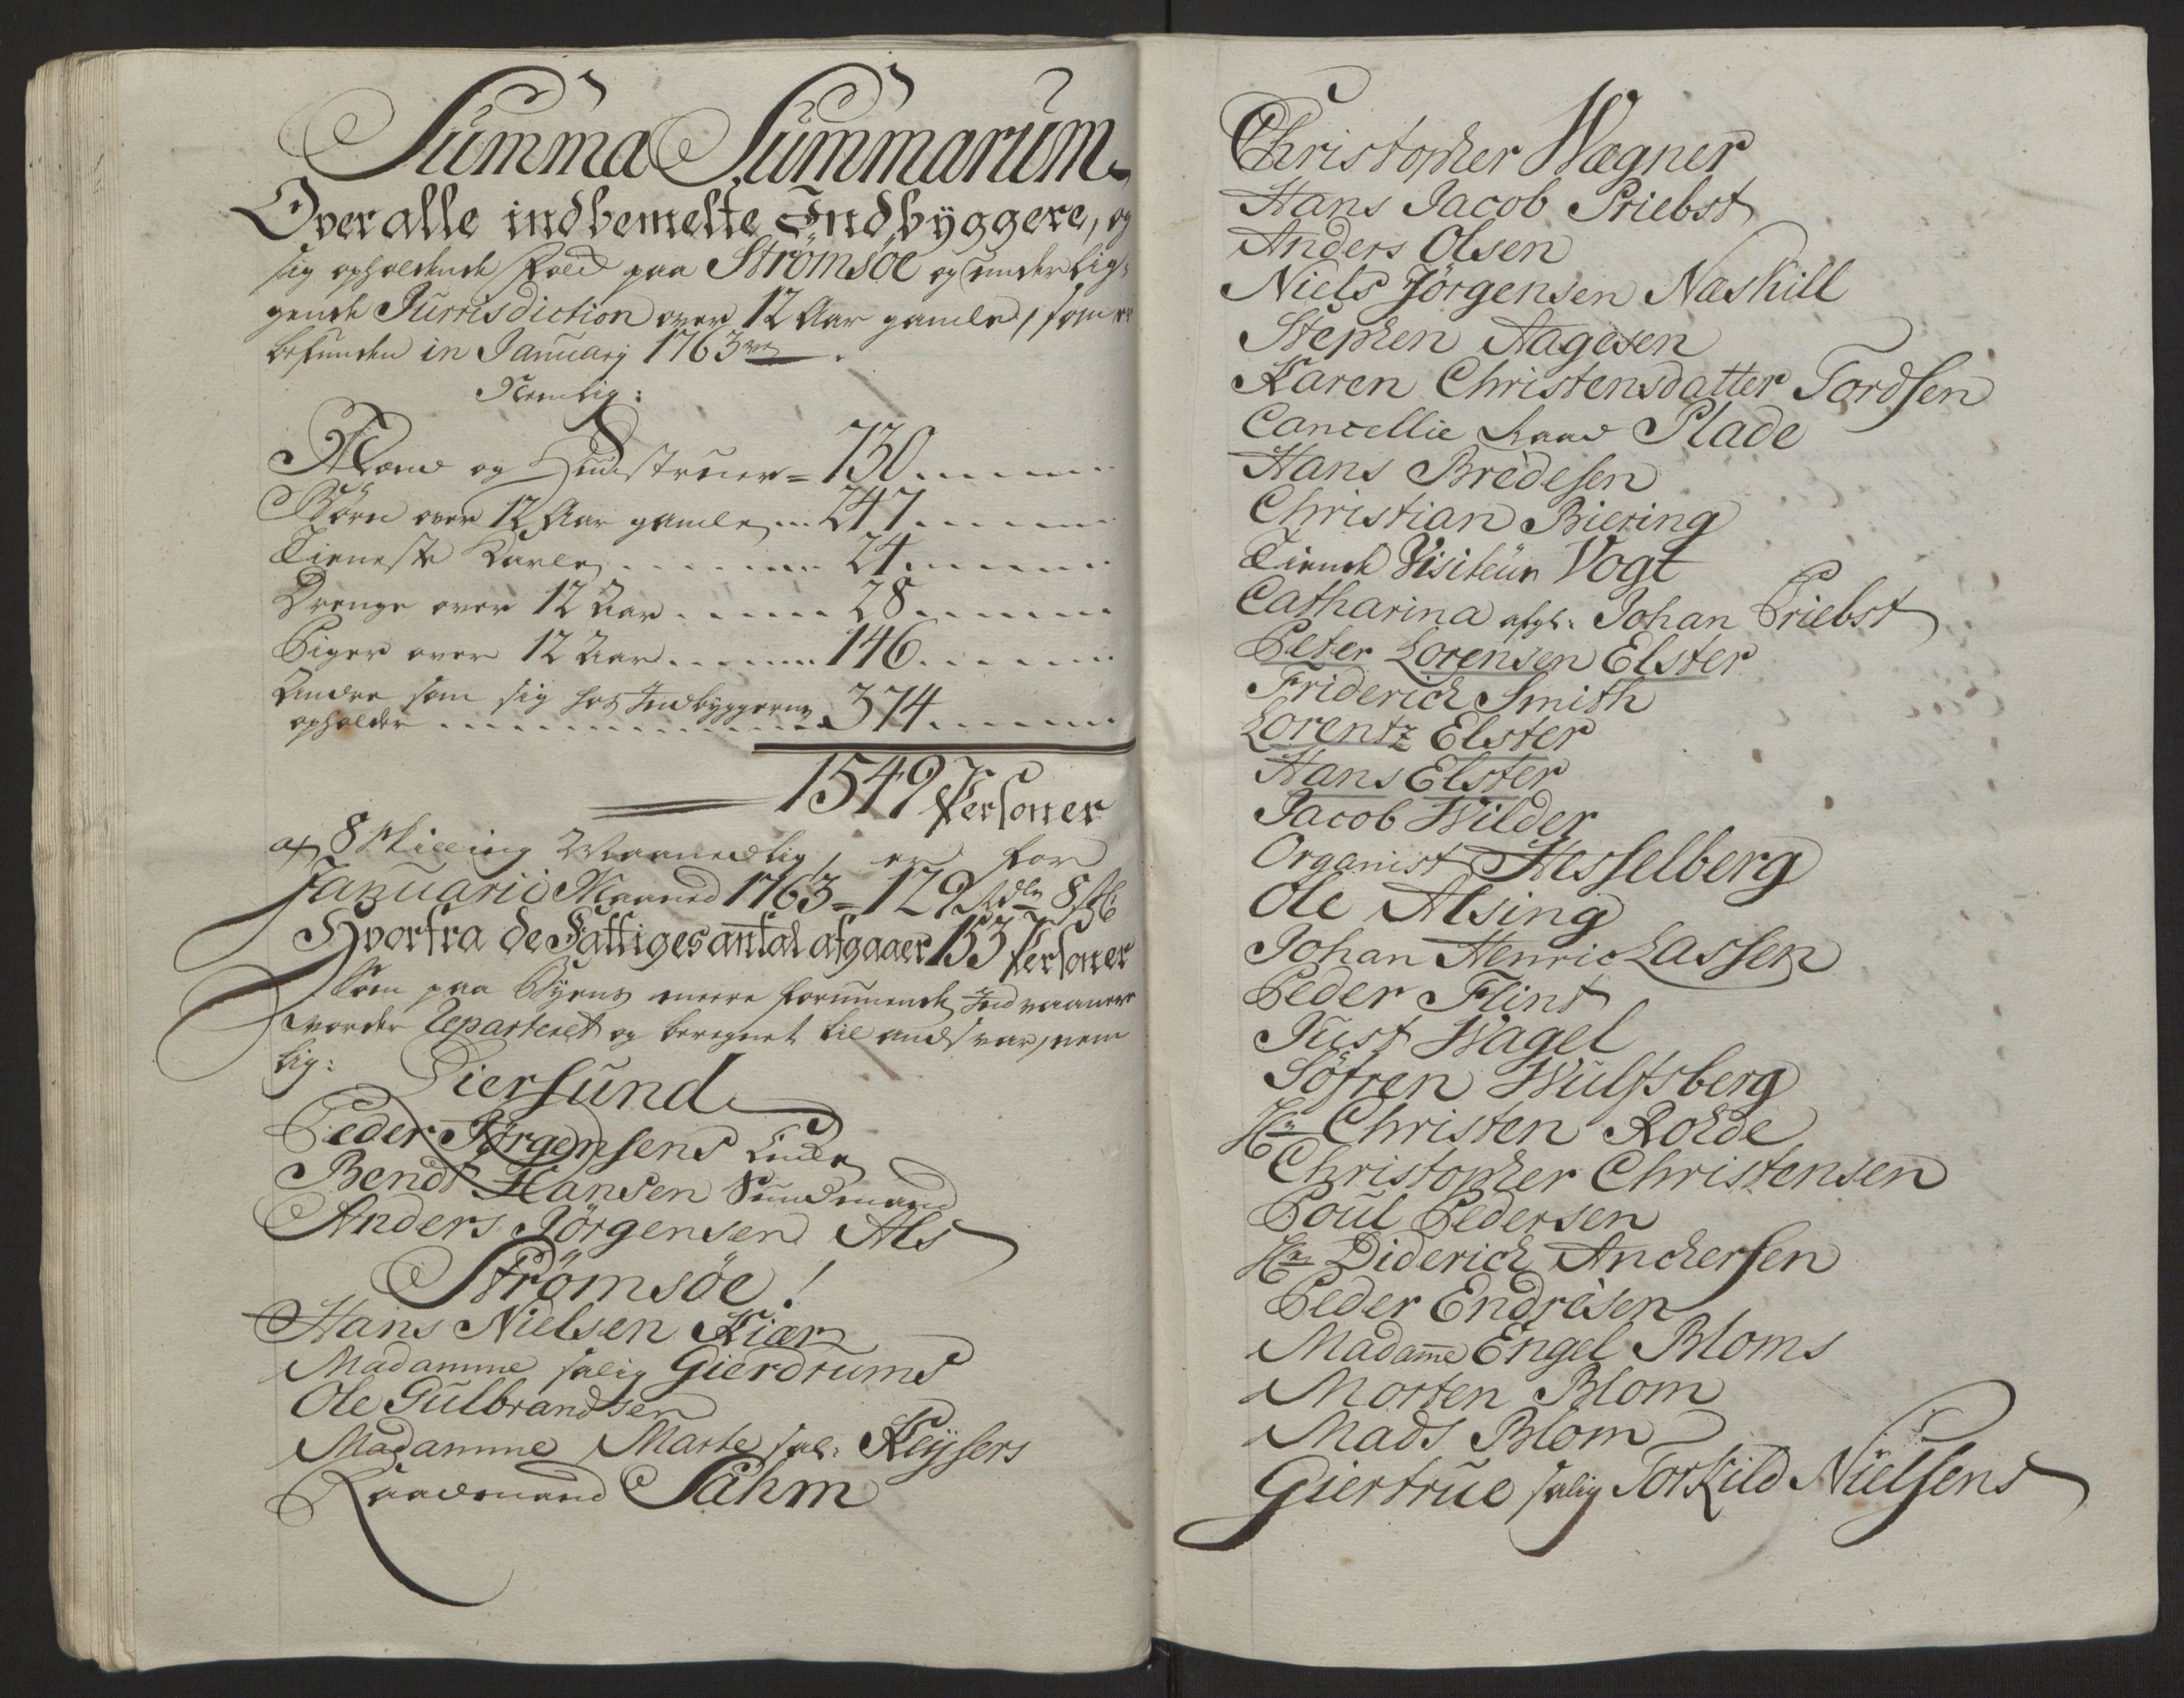 Summa Summarum
Over alle indbemelte Indbyggere, og
sig opholdende Folck paa Strømsøe og underlig-
gende Jurrisdiction over 12 Aar gamle, som er
befunden in January 1763
Nemlig:
Mænd og Hustruer = 730
Børn over 12 Aar gamle 247
Tieneste Karle 24
Drenge over 12 Aar 28
Piger over 12 Aar 146
Andre som sig hos Indbyggerne
opholder 374
1549 Personer
af 8 Skilling Maanedlig, er for
Januarii Maaned 1763 = 129 Rdlr 8 s
Hvorfra de Fattiges antal afgaaer 153 Personer
Som paa Byens meere formuende Indvaanere
vorder reparteret og beregnet til andsvar, nem
lig:
Tiersund
Peder Jørgensens Encke
Bendt Hansen Sundmand
Anders Jørgensen Als
Strømsøe!
Hans Nielsen Kiær
Madamme salig Gierdrums
Ole Gulbrandsen
Madamme Marte sal: Keysers
Raadmand Sahm
Christopher Wægner
Hans Jacob Priebst
Anders Olsen
Niels Jørgensen Næskill
Stephen Aagesen
Karen Christensdatter Tordsen
Cancellie Raad Plade
Hans Bredesen
Christian Biering
Tiende Visiteur Vogt
Catharina afgl: Johan Priebst
Peter Lorensen Elster
Friderich Smith
Lorentz Elster
Hans Elster
Jacob Wilder
Organist Hesselberg
Ole Alsing
Johan Henric Lassen
Peder Flint
Just Wagel
Søfren Wulfsberg
Hr Christen Rohde
Christopher Christensen
Poul Pedersen
Hr Diderich Anchersen
Peder Endresen
Madame Engel Bloms
Morten Blom
Mads Blom
Giertrue salig Torkild Nielsens